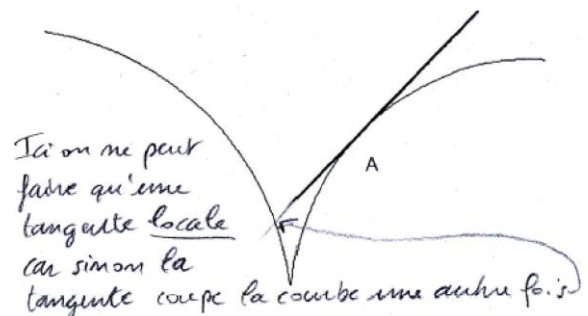 Ici on ne peut
faire qu'une
A
tangente locale
car sinon la
tangente coupe la courbe une autre fois